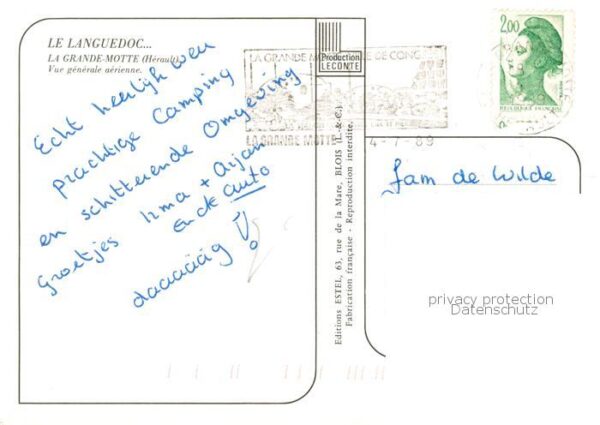 LE LANGUEDOC...
LA GRANDE-MOTTE (Hérault).
Vue générale aérienne.
Echt heerlijk weer
prachtige Camping
en schitterende Omgeving
Groetjes Irma + Arjan
en de auto
daaaäag !
Production
LECONTE
Editions ESTEL, 63, rue de la Mare, BLOIS (L.-&-C.)
Fabrication française - Reproduction interdite.
LA GRANDE MOTTE
4-7-89
2,00
REPUBLIQUE FRANÇAISE
fam de Wilde
privacy protection
Datenschutz